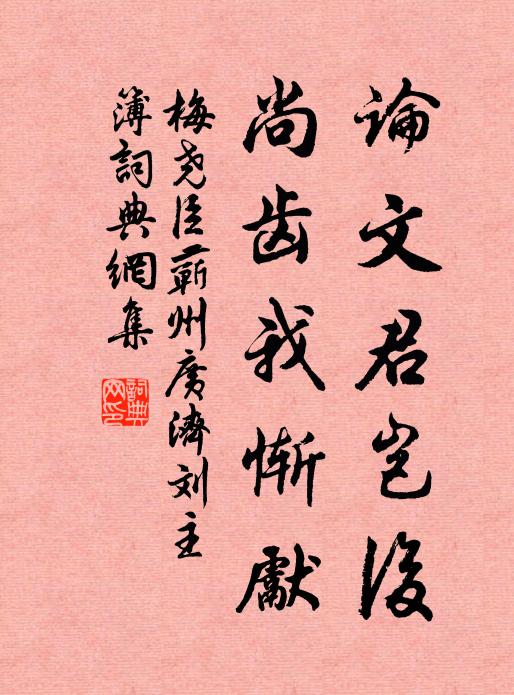 论文君岂后
尚齿我惭献
梅尧臣蕲州广济刘主
簿詞典網集
詞典
网印